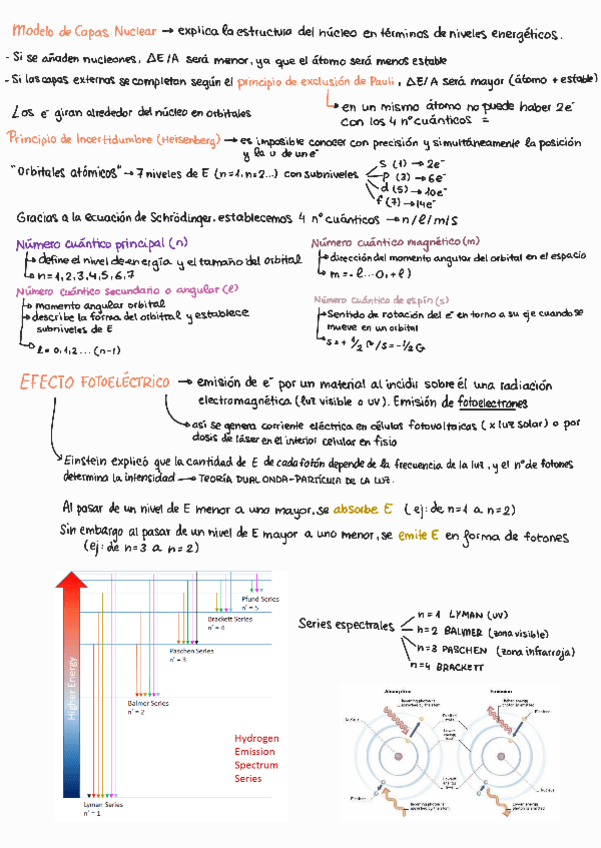 Modelo de Capas Nuclear → explica la estructura del núcleo en términos de niveles energéticos.
- Si se añaden nucleones, ΔE/A será menor, ya que el átomo será menos estable
- Si las capas externas se completan según el principio de exclusión de Pauli, ΔE/A será mayor (átomo + estable)
↳ en un mismo átomo no puede haber 2e⁻
con los 4 nº cuánticos =
Los e⁻ giran alrededor del núcleo en orbitales
Principio de Incertidumbre (Heisenberg) → es imposible conocer con precisión y simultáneamente la posición
y la v de un e⁻
"Orbitales atómicos" → 7 niveles de E (n=1, n=2...) con subniveles
s (1) → 2e⁻
p (3) → 6e⁻
d (5) → 10e⁻
f (7) → 14e⁻
Gracias a la ecuación de Schrödinger, establecemos 4 nº cuánticos → n/l/m/s
Número cuántico principal (n)
↳ define el nivel de energía y el tamaño del orbital
↳ n = 1, 2, 3, 4, 5, 6, 7
Número cuántico secundario o angular (l)
↳ momento angular orbital
↳ describe la forma del orbitral y establece
subniveles de E
↳ l = 0, 1, 2 ... (n-1)
Número cuántico magnético (m)
↳ dirección del momento angular del orbital en el espacio
↳ m = -l ... 0, +l)
Número cuántico de espín (s)
↳ Sentido de rotación del e⁻ en torno a su eje cuando se
mueve en un orbital
↳ s = + 1/2 / s = -1/2
EFECTO FOTOELÉCTRICO → emisión de e⁻ por un material al incidir sobre él una radiación
electromagnética (luz visible o UV). Emisión de fotoelectrones
↳ así se genera corriente eléctrica en células fotovoltaicas (x luz solar) o por
dosis de láser en el interior celular en fisio
Einstein explicó que la cantidad de E de cada fotón depende de la frecuencia de la luz, y el nº de fotones
determina la intensidad → TEORÍA DUAL ONDA-PARTÍCULA DE LA LUZ.
Al pasar de un nivel de E menor a uno mayor, se absorbe E (ej: de n=1 a n=2)
Sin embargo al pasar de un nivel de E mayor a uno menor, se emite E en forma de fotones
(ej: de n=3 a n=2)
Higher Energy
Pfund Series
n' = 5
Brackett Series
n' = 4
Paschen Series
n' = 3
Balmer Series
n' = 2
Hydrogen
Emission
Spectrum
Series
Lyman Series
n' = 1
Series espectrales
n = 1 LYMAN (UV)
n=2 BALMER (zona visible)
n=3 PASCHEN (zona infrarroja)
n=4 BRACKETT
Absorption
Emission
Electron
Nucleus